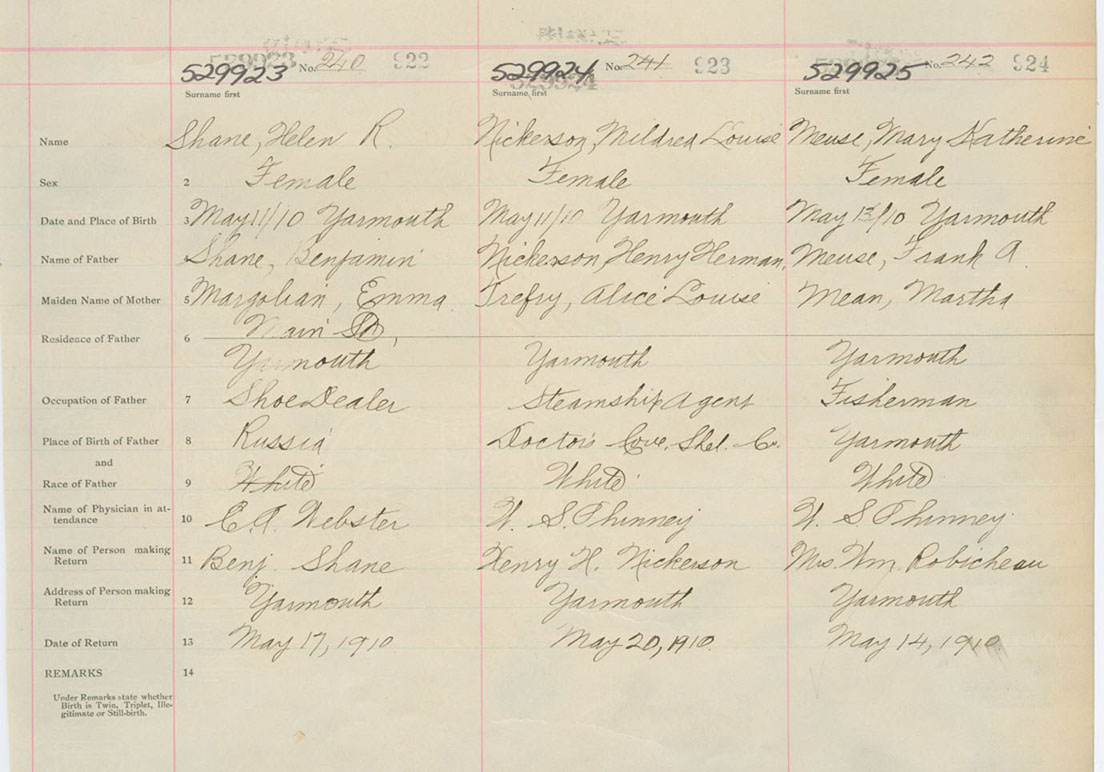 529923 No. 240 922 529924 No. 241 923 529925 No. 242 924
Surname first Surname first Surname first
Name Shane, Helen R. Nickerson, Mildred Louise Meuse, Mary Katherine
Sex 2 Female Female Female
Date and Place of Birth 3 May 11/10 Yarmouth May 11/10 Yarmouth May 13/10 Yarmouth
Name of Father Shane, Benjamin Nickerson, Henry Herman, Meuse, Frank A.
Maiden Name of Mother 5 Margolian, Emma Trefry, Alice Louise Mean, Martha
Main St,
Residence of Father 6
Yarmouth Yarmouth Yarmouth
Occupation of Father 7 Shoe Dealer Steamship Agent Fisherman
Place of Birth of Father 8 Russia Doctors Cove, Shel. Co. Yarmouth
and
Race of Father 9 White White White
Name of Physician in at-
tendance 10 Webster W. S. Phinney W. S. Phinney
Name of Person making
Return 11 Benj. Shane Henry H. Nickerson Mrs. Wm. Robicheau
Address of Person making
Return 12 Yarmouth Yarmouth Yarmouth
Date of Return 13 May 17, 1910 May 20, 1910. May 14, 1910
REMARKS 14
Under Remarks state whether
Birth is Twin, Triplet, Ille-
gitimate or Still-birth.